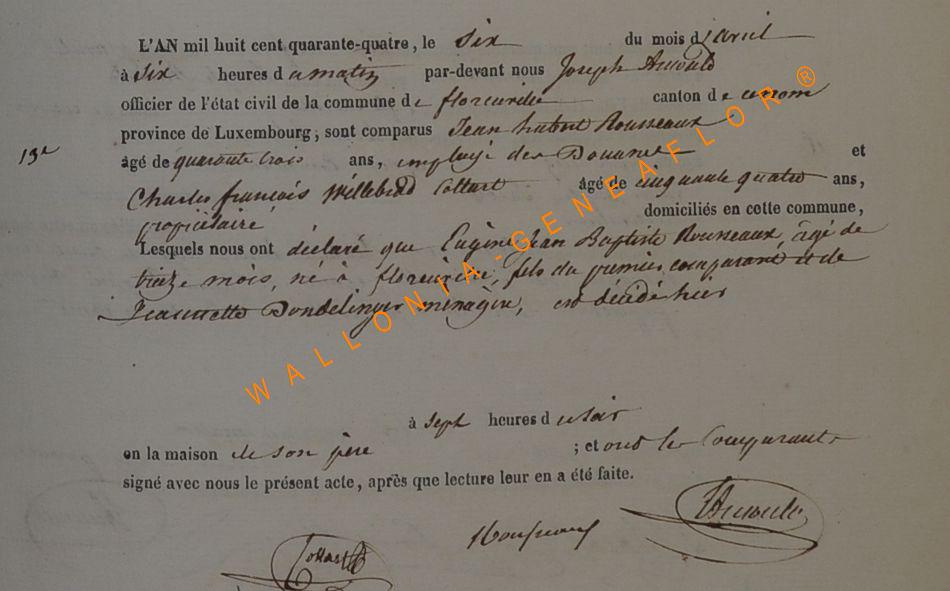 L'AN mil huit cent quarante-quatre, le six du mois d'avril
à six heures du matin par-devant nous Joseph Arnould
officier de l'état civil de la commune de florenville canton de
province de Luxembourg, sont comparus Jean hubert Rousseaux
13e âgé de quarante trois ans, employé des Douanes et
Charles françois Willebrod Collart âgé de cinquante quatre ans,
propriétaire domiciliés en cette commune,
Lesquels nous ont déclaré que Eugène Jean Baptiste Rousseaux, âgé de
treize mois, né à florenville, fils du premier comparant et de
Jeannette Dondelinger ménagère, est décédé hier
à sept heures du soir
en la maison de son père ; et ont les Comparants
signé avec nous le présent acte, après que lecture leur en a été faite.
JArnould
Rousseaux
Collart
WALLONIA-GENEAFLOR®